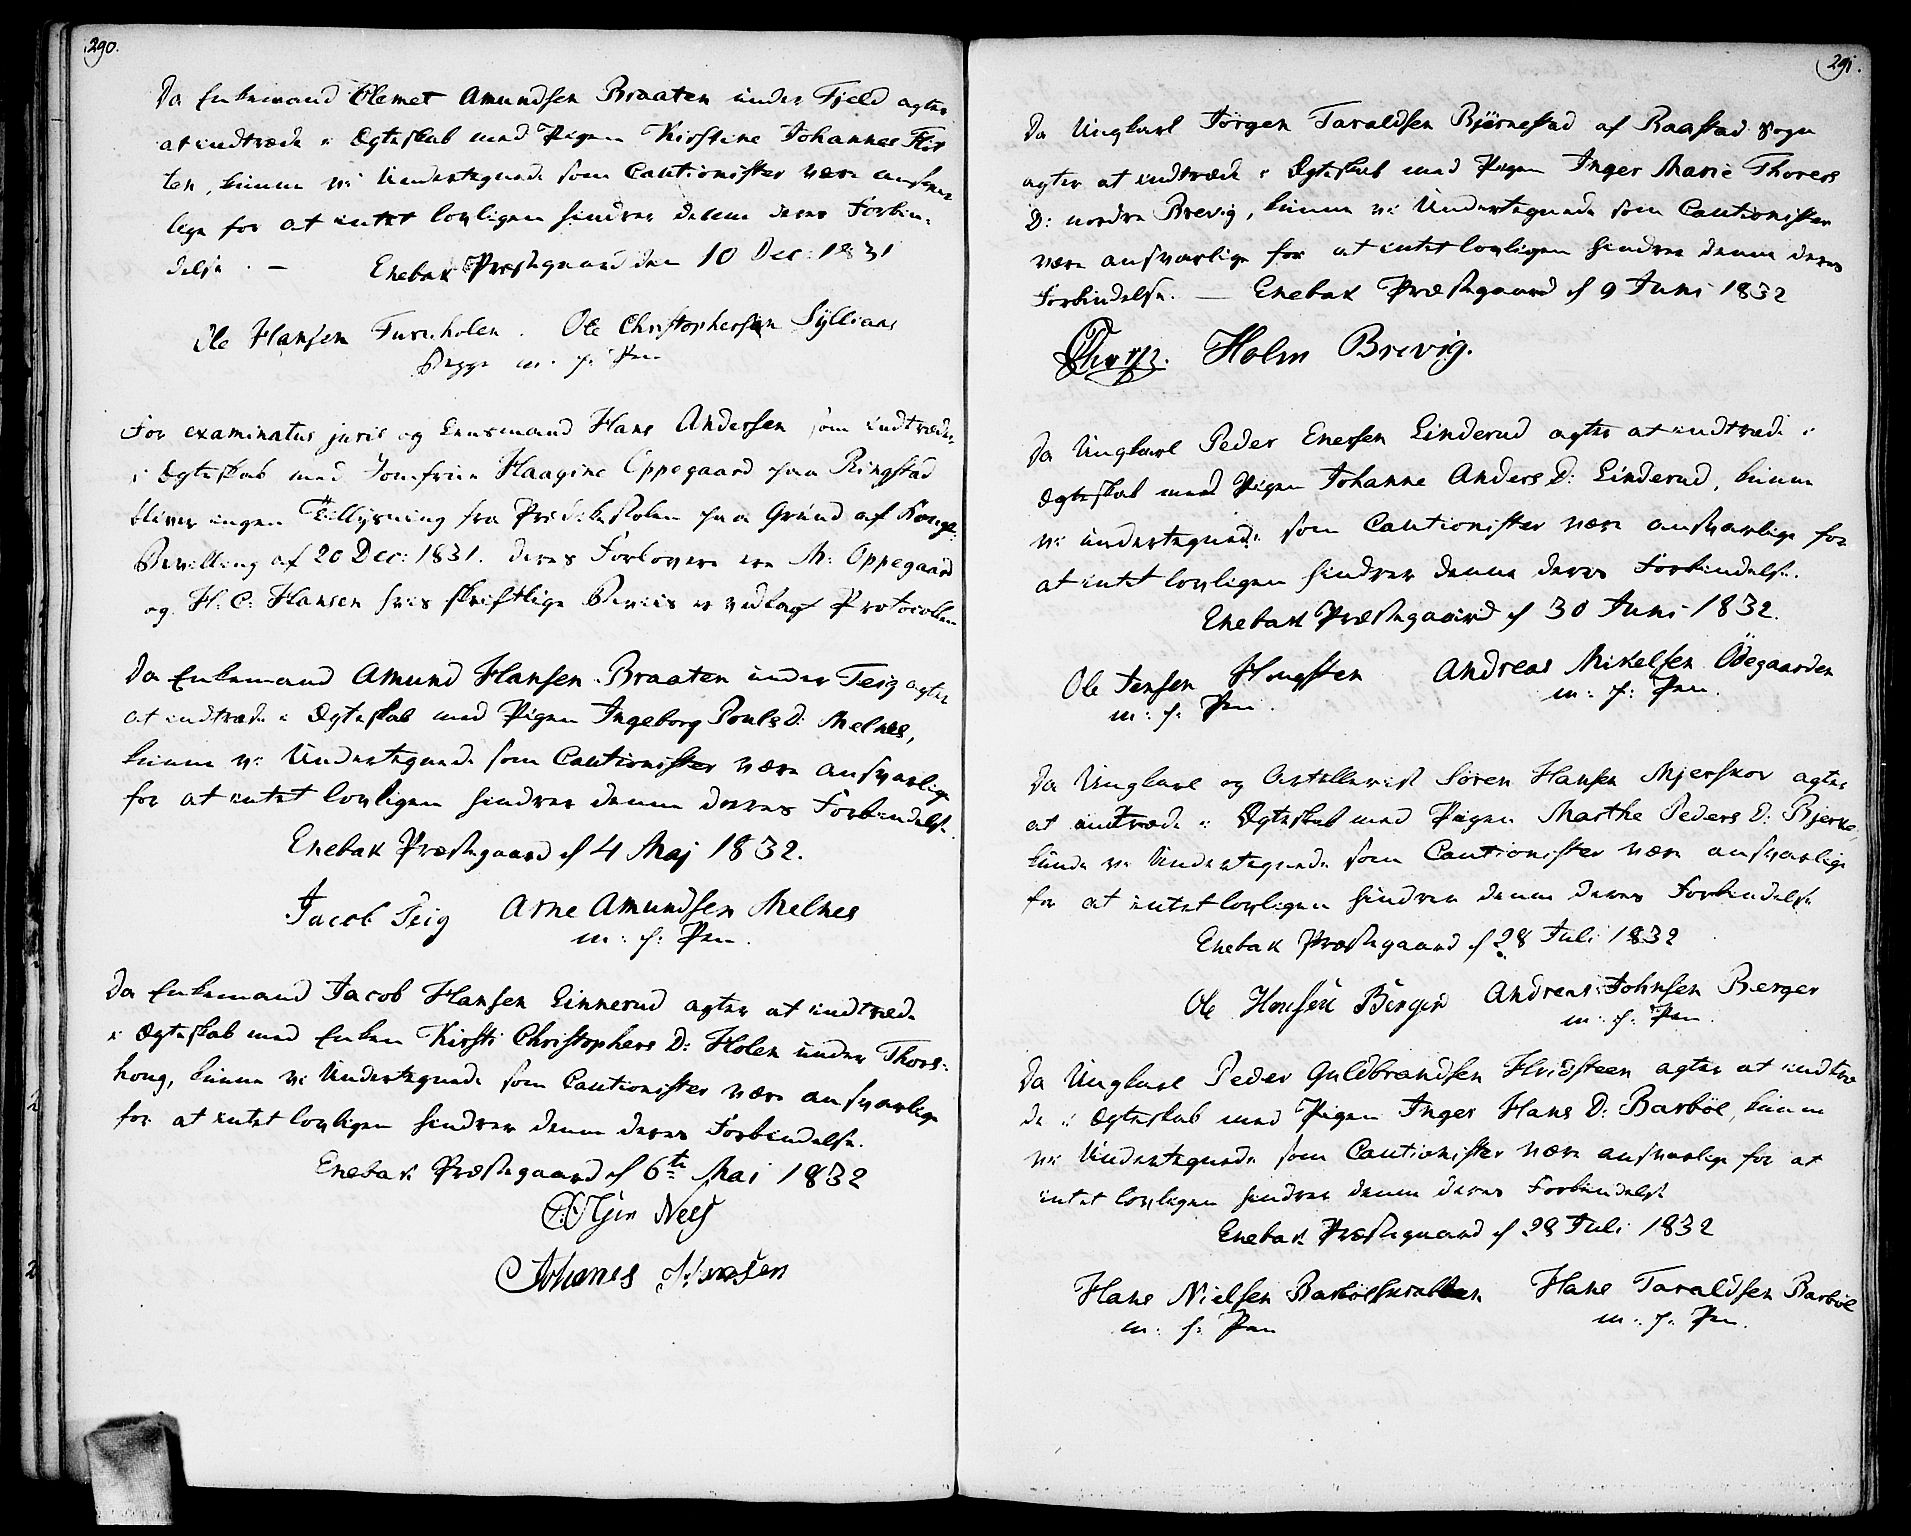 290.
Da Enkemand Clemet Amundsen Braaten under Fjeld agter
at indtræde i Ægteskab med Pigen Kirstine Johannes Flit
ten, kunne vi Undertegnede som Cautionister være ansvar
lige for at intet lovligen hindrer denne deres Forbin-
delse. — Enebak Præstegaard den 10 Dec: 1831
Ole Hansen Furuholen. Ole Christophersen Sylliaas
Begge m. f. Pen
For examinatus juris og Enkemand Hans Andersen som indtræder
i Ægteskab med Jomfrue Haagine Oppegaard paa Ringstad
bliver ingen Tillysning fra Prædikestolen paa Grund af Konge-
Bevilling af 20 Dec: 1831. deres Forlovere ere M: Oppegaard
og H. C: Hansen hvis skriftlige Beviis er vedlagt Protocollen
Da Enkemand Amund Hansen Braaten under Teig agter
at indtræde i Ægteskab med Pigen Ingeborg Pouls d: Melnes,
kunne vi Undertegnede som Cautionister være ansvarlige
for at intet lovligen hindrer denne deres Forbindelse.
Enebak Præstegaard d 4 Maj 1832.
Jacob Teig Arne Amundsen Melnes
m: f: Pen.
Da Enkemand Jacob Hansen Linnerud agter at indtræde
i Ægteskab med Enken Kirsti Christophers D: Holen under Thors-
houg, kunne vi Undertegnede som Cautionister være ansvarlige
for at intet lovligen hindrer denne deres Forbindelse.
Enebak Præstegaard d 6te Mai 1832
Johanes
291.
Da Ungkarl Jörgen Taraldsen Bjørnestad af Raastad Sogn
agter at indtræde i Ægteskab med Pigen Inger Marie Thorers
D: nordre Brevig, kunne vi Undertegnede som Cautionister
være ansvarlige for at intet lovligen hindrer denne deres
Forbindelse. — Enebak Præstegaard d 9 Juni 1832
Holm Brevig.
Da Ungkarl Peder Enersen Linderud agter at indtræde i
Ægteskab med Pigen Johanne Anders D: Linderud, kunne
vi undertegnede som Cautionister være ansvarlige for
at intet lovligen hindrer denne deres Forbindelse.
Enebak Præstegaard d 30 Juni 1832.
Ole Jensen Hougsten Andreas Mikelsen Ödegaarden
m: f: Pen. m: f: Pen.
Da Ungkarl og Artillerist Søren Hansen Mjerskov agter
at indtræde i Ægteskab med Pigen Marthe Peders D: Bjerke,
kunde vi Undertegnede som Cautionister være ansvarlige
for at intet lovligen hindrer denne deres Forbindelse
Enebak Præstegaard d 28 Juli 1832
Ole Andreas Johnsen Berger
m: f: Pen.
Da Ungkarl Peder Guldbrandsen Hvidsteen agter at indtræ
de i Ægteskab med Pigen Inger Hans D: Barböl, kunne
vi Undertegnede som Cautionister være ansvarlige for at
intet lovligen hindrer denne deres Forbindelse
Enebak Præstegaard d 28 Juli 1832
Hans Nielsen Hans Taraldsen Barböl
m: f: Pen m: f: Pen.